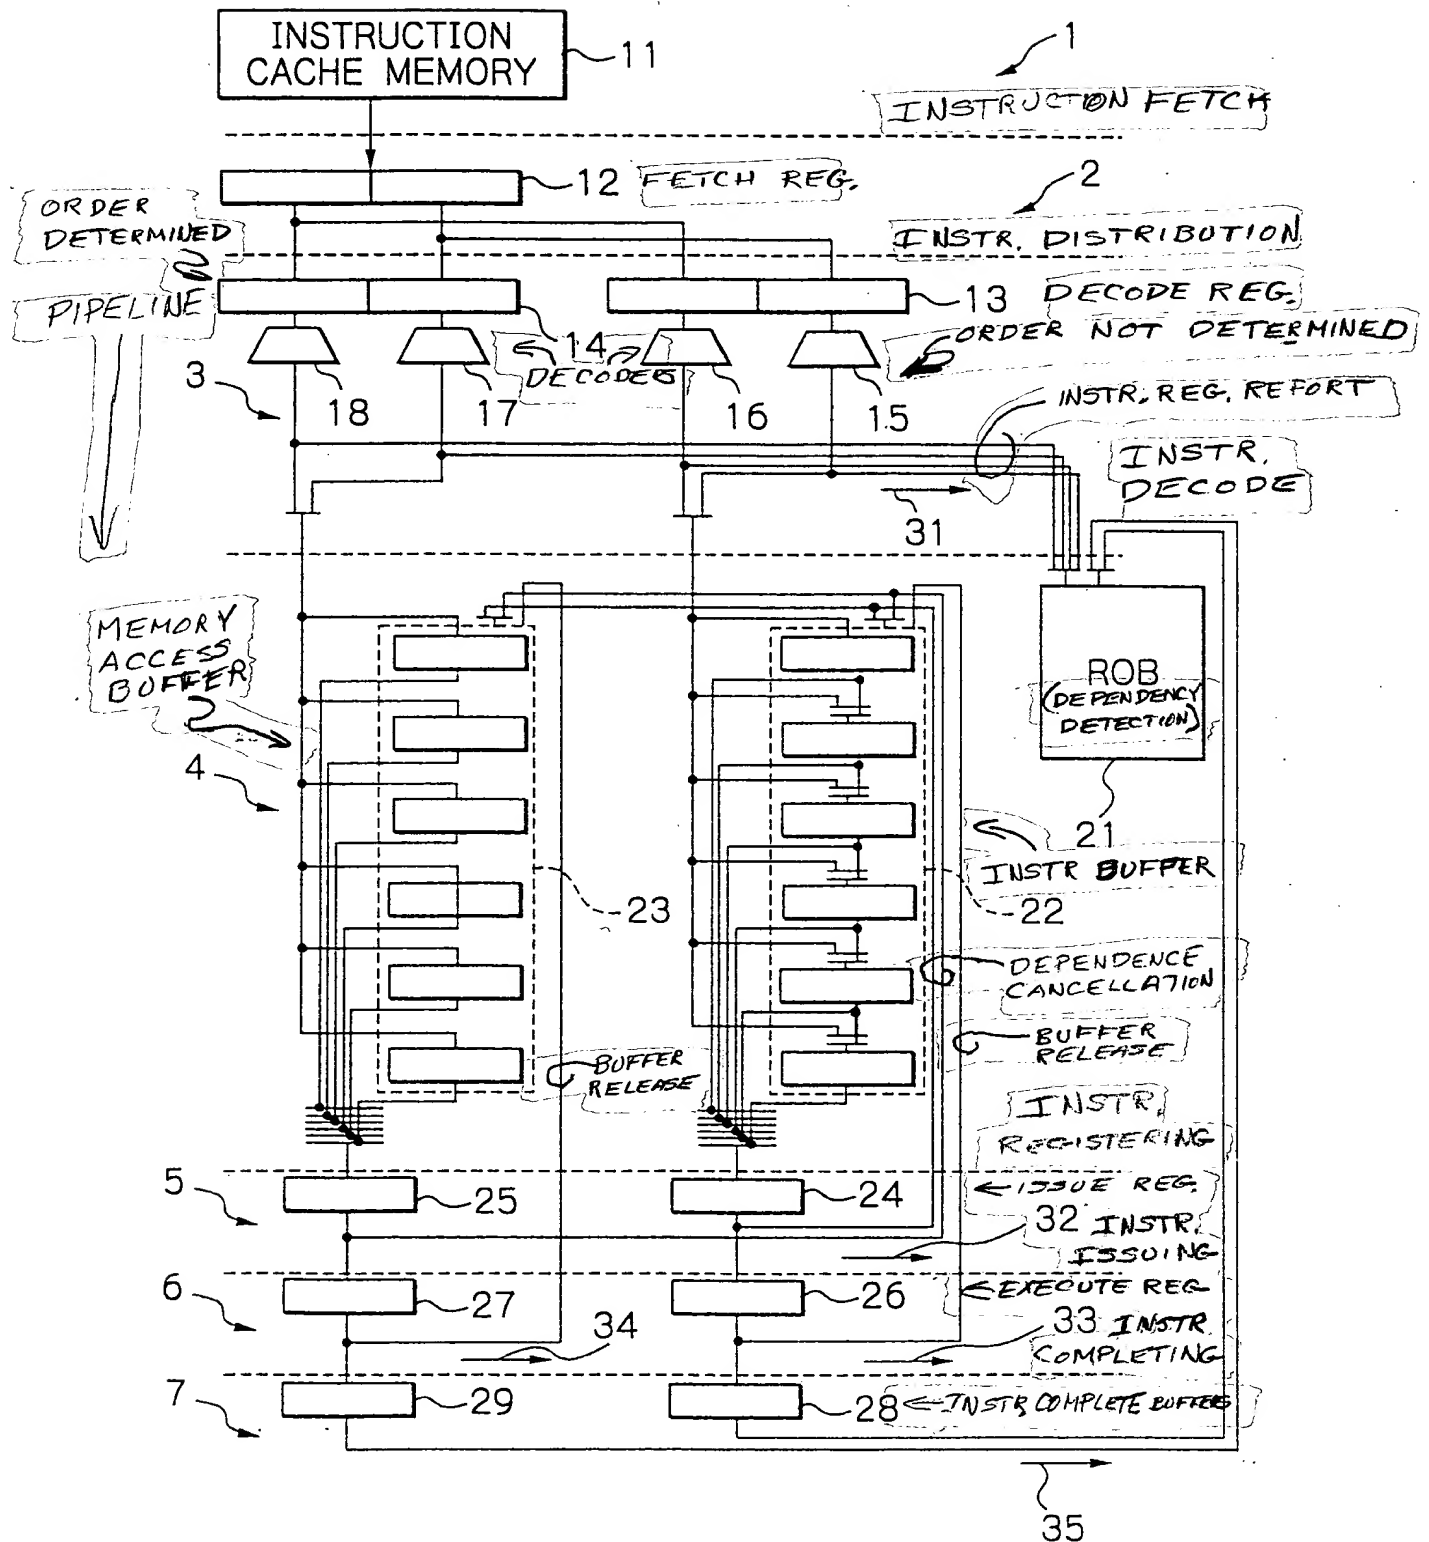 INSTRUCTION
CACHE MEMORY
11
1
INSTRUCTION FETCH
12
FETCH REG.
2
ORDER
DETERMINED
INSTR. DISTRIBUTION
PIPELINE
13
DECODE REG.
14
ORDER NOT DETERMINED
DECODERS
3
18
17
16
15
INSTR. REG. REPORT
INSTR.
DECODE
31
MEMORY
ACCESS
BUFFER
ROB
(DEPENDENCY
DETECTION)
4
21
INSTR BUFFER
23
22
DEPENDENCE
CANCELLATION
BUFFER
RELEASE
BUFFER
RELEASE
INSTR.
REGISTERING
5
25
24
ISSUE REG.
32 INSTR.
ISSUING
6
27
26
EXECUTE REG
34
33 INSTR
COMPLETING
7
29
28
INSTR COMPLETE BUFFERS
35